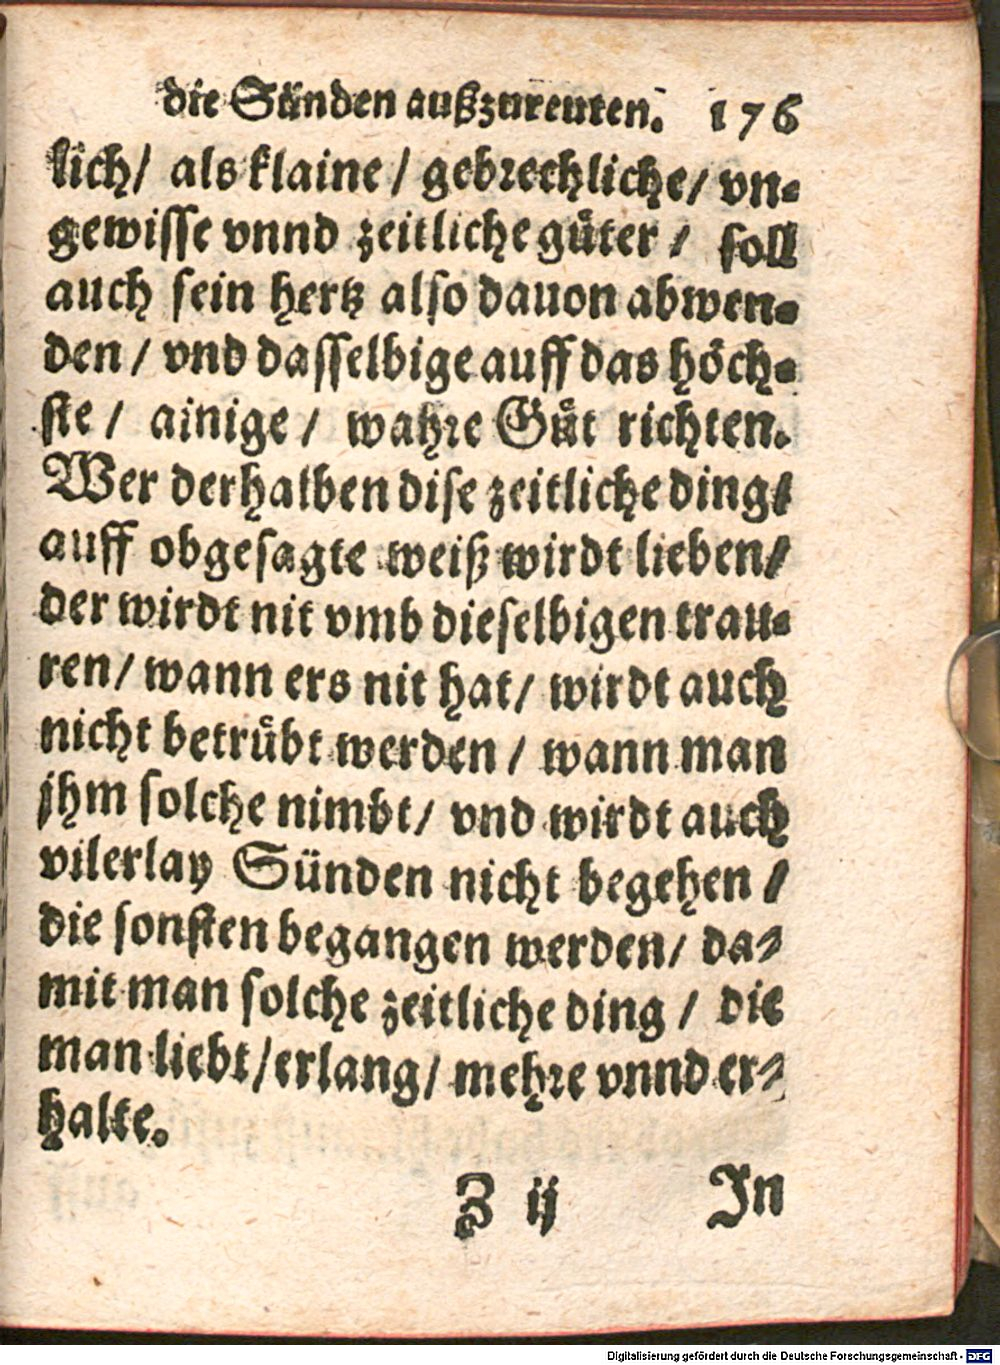 die Sünden außzureuten. 176
lich/ als klaine / gebrechliche/ vn⸗
gewisse vnnd zeitliche guͤter / soll
auch sein hertz also dauon abwen⸗
den / vnd dasselbige auff das hoͤch⸗
ste / ainige / wahre Guͤt richten.
Wer derhalben dise zeitliche ding/
auff obgesagte weiß wirdt lieben/
der wirdt nit vmb dieselbigen trau⸗
ren/ wann ers nit hat/ wirdt auch
nicht betruͤbt werden / wann man
jhm solche nimbt/ vnd wirdt auch
vilerlay Sünden nicht begehen /
die sonsten begangen werden/ da⸗
mit man solche zeitliche ding / die
man liebt/ erlang/ mehre vnnd er⸗
halte.
Z ij In
Digitalisierung gefördert durch die Deutsche Forschungsgemeinschaft - DFG